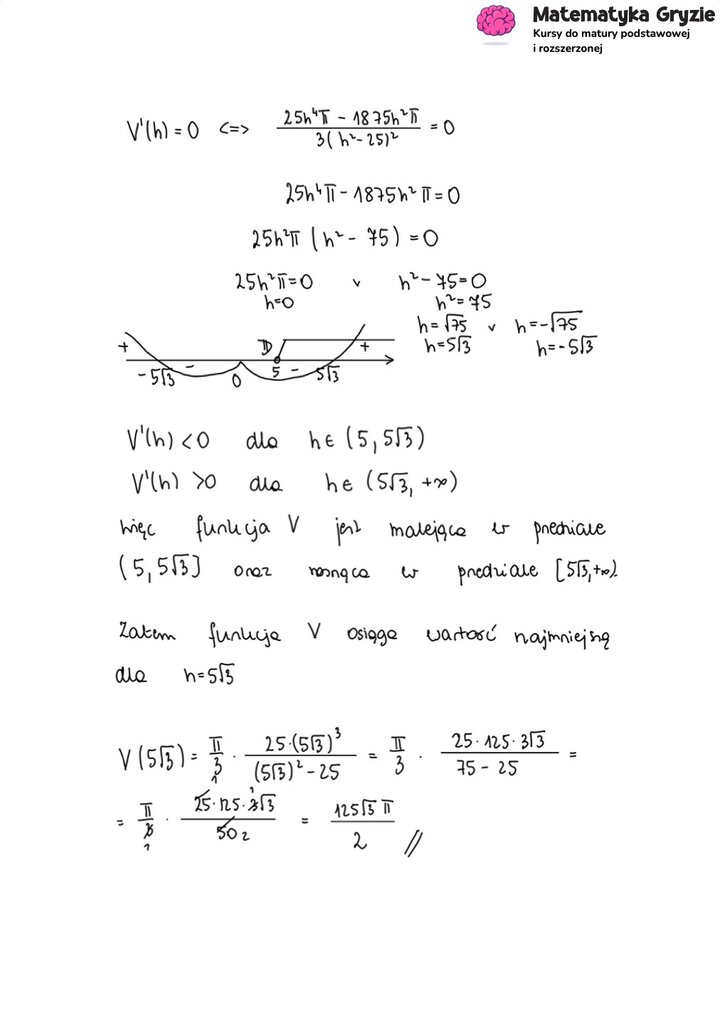 Matematyka Gryzie
Kursy do matury podstawowej
i rozszerzonej
V'(h) = 0 <=> (25h⁴π - 1875h²π) / (3(h²-25)²) = 0
25h⁴π - 1875h²π = 0
25h²π (h² - 75) = 0
25h²π = 0 v h² - 75 = 0
h=0 h² = 75
h = √75 v h = -√75
h = 5√3 h = -5√3
+ D +
-5√3 - 0 5 - 5√3
V'(h) < 0 dla h ∈ (5, 5√3)
V'(h) > 0 dla h ∈ (5√3, +∞)
Więc funkcja V jest malejąca w przedziale
(5, 5√3] oraz rosnąca w przedziale [5√3, +∞)
Zatem funkcja V osiąga wartość najmniejszą
dla h = 5√3
V(5√3) = π/3 · (25·(5√3)³) / ((5√3)² - 25) = π/3 · (25·125·3√3) / (75 - 25) =
= π/3 1 · (25·125·3 1 √3) / (50 2) = (125√3 π) / 2 //